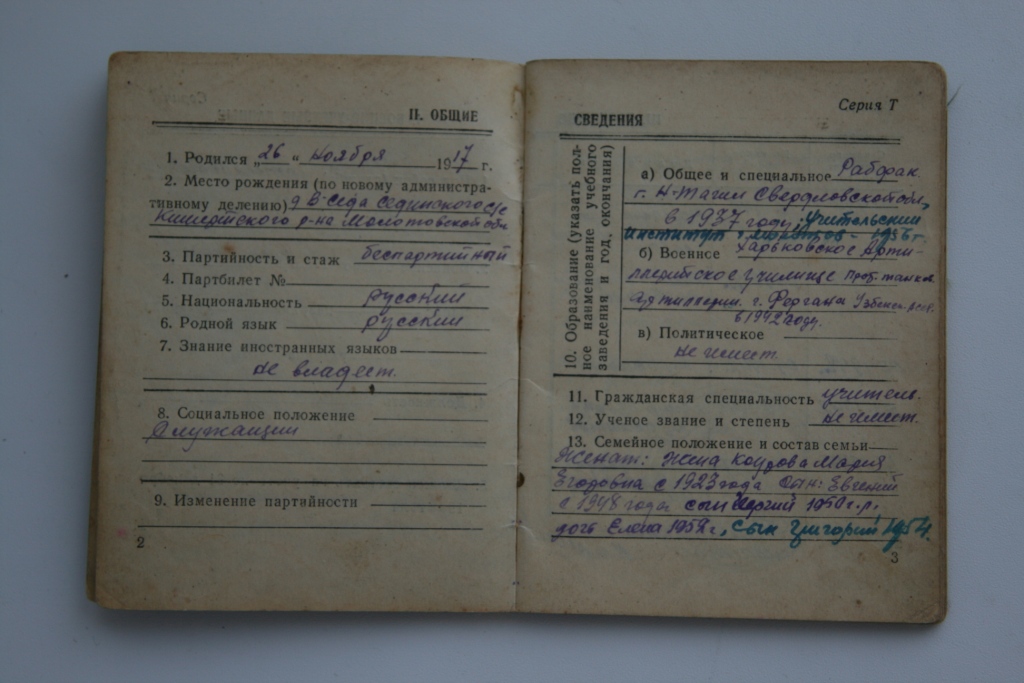 II. ОБЩИЕ
1. Родился „26" ноября 1917 г.
2. Место рождения (по новому административному
тивному делению) д В-Седа Сединского с/с
р-на Молотовской обл
3. Партийность и стаж беспартийный
4. Партбилет №
5. Национальность русский
6. Родной язык русский
7. Знание иностранных языков
не владеет.
8. Социальное положение
Служащий
9. Изменение партийности
2
Серия Т
СВЕДЕНИЯ
10. Образование (указать пол-
ное наименование учебного
заведения и год, окончания)
а) Общее и специальное Рабфак
г. Н-Тагил Свердловской обл,
в 1937 году; учительский
институт 1956 г.
б) Военное Харьковское Арти-
ллерийское училище прот. танков.
артиллерии. г. Фергана Узбекск.
в 1942 году.
в) Политическое
Не имеет.
11. Гражданская специальность учитель.
12. Ученое звание и степень Не имеет.
13. Семейное положение и состав семьи
Женат: жена Мария
Егоровна с 1923 года Сын: Евгений
с 1948 года сын 1950 г.р.
дочь Елена 1952 г, Сын Григорий 1954.
3